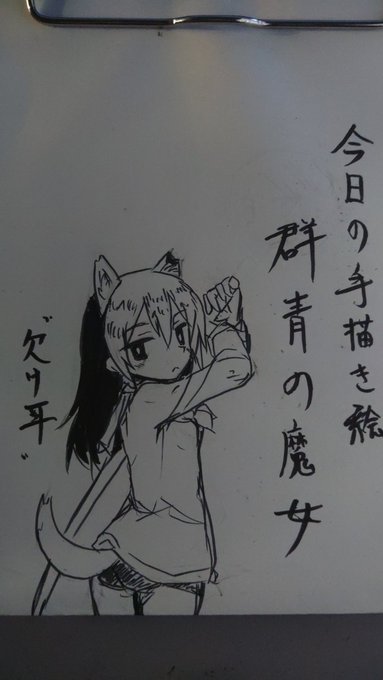 今日の手描き絵
群青の魔女
"欠け耳"